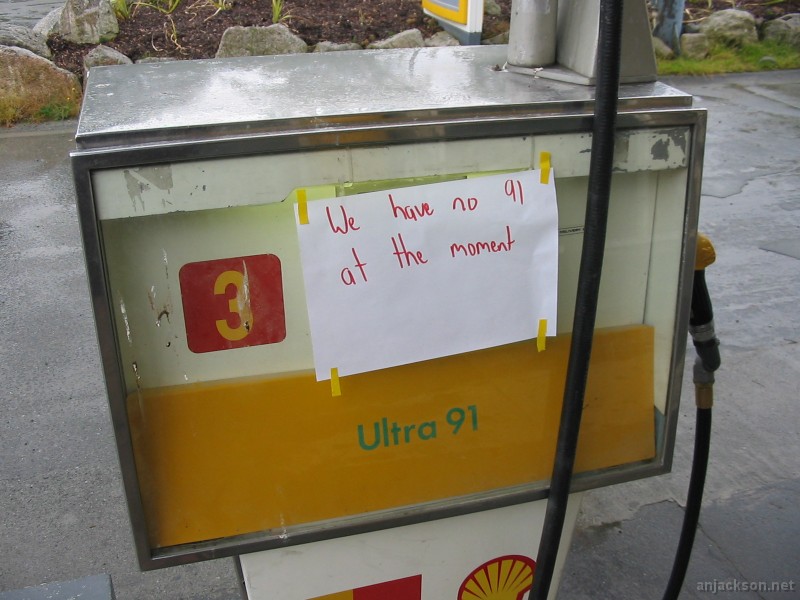 We have no 91
at the moment
3
Ultra 91
anjackson.net